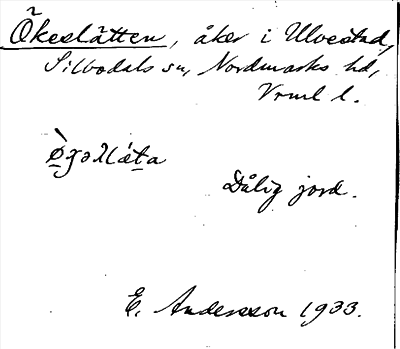 Ökeslätten, åker i Ulvestad,
Silbodals sn, Nordmarks hd,
Vrml l.
Dålig jord.
E. Andersson 1933.